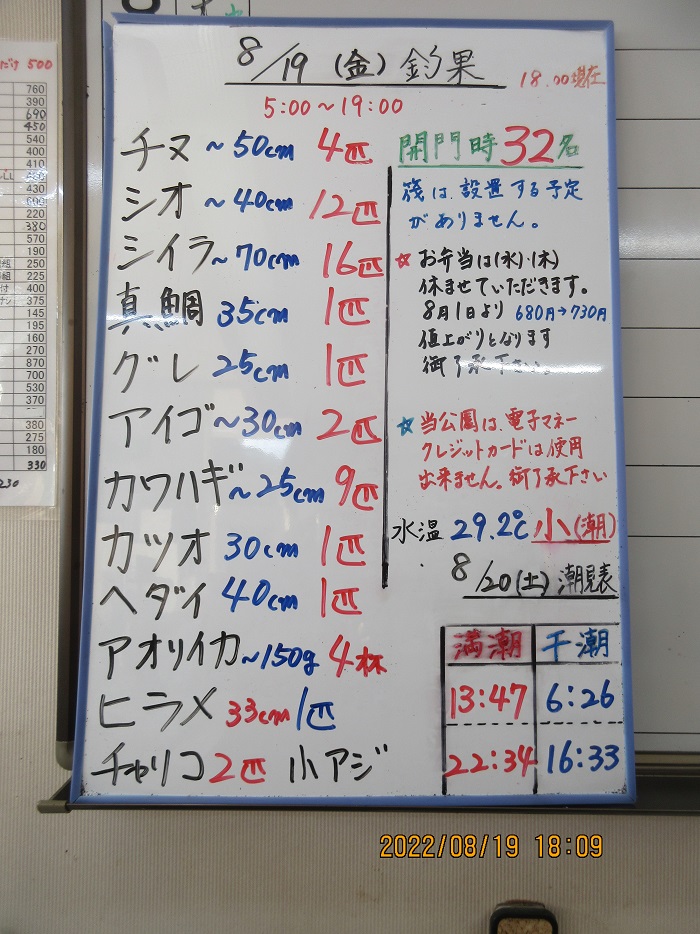 8/19(金)釣果
18.00現在
5:00～19:00
チヌ ～50cm 4匹
シオ ～40cm 12匹
シイラ～70cm 16匹
真鯛 35cm 1匹
グレ 25cm 1匹
アイゴ～30cm 2匹
カワハギ～25cm 9匹
カツオ 30cm 1匹
ヘダイ 40cm 1匹
アオリイカ～150g 4杯
ヒラメ 33cm 1匹
チャリコ 2匹 小アジ
開門時32名
筏は、設置する予定
がありません。
☆お弁当は(水)・(木)
休ませていただきます。
8月1日より 680円→730円
値上がりとなります
御了承下さい。
☆当公園は、電子マネー
クレジットカードは使用
出来ません。御了承下さい
水温 29.2℃ 小(潮)
8/20(土)潮見表
満潮 干潮
13:47 6:26
22:34 16:33
500
760
390
690
450
540
400
410
430
600
220
380
570
190
250
275
400
375
145
195
160
270
870
700
530
370
380
275
180
330
230
2022/08/19 18:09